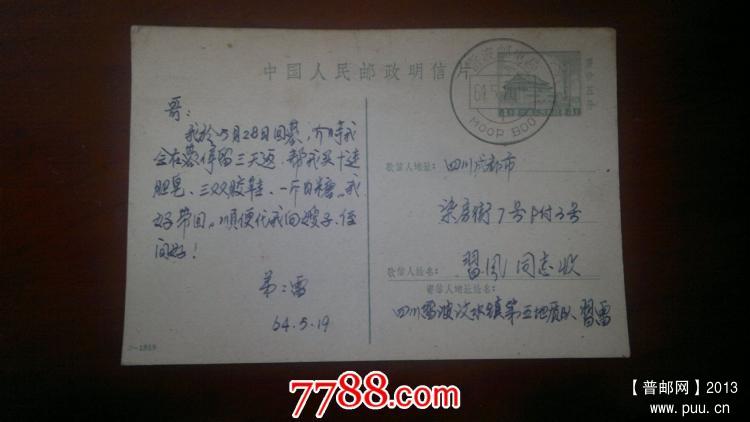 中国人民邮政明信片
64.5.20
MOOP BOO
哥:
我於5月28日回蓉,介时我
会在蓉停留三天返.帮我买十连
胆皂、三双胶鞋、一斤白糖。我
好带回。順便代我向嫂子.侄
问好!
弟:雷
64.5.19
收信人地址:四川成都市
染房街7号附3号
收信人姓名:習凤同志收
寄信人地址姓名:
四川雷波汶水镇第五地质队 習雷
7788.com
【普邮网】2013
www.puu.cn